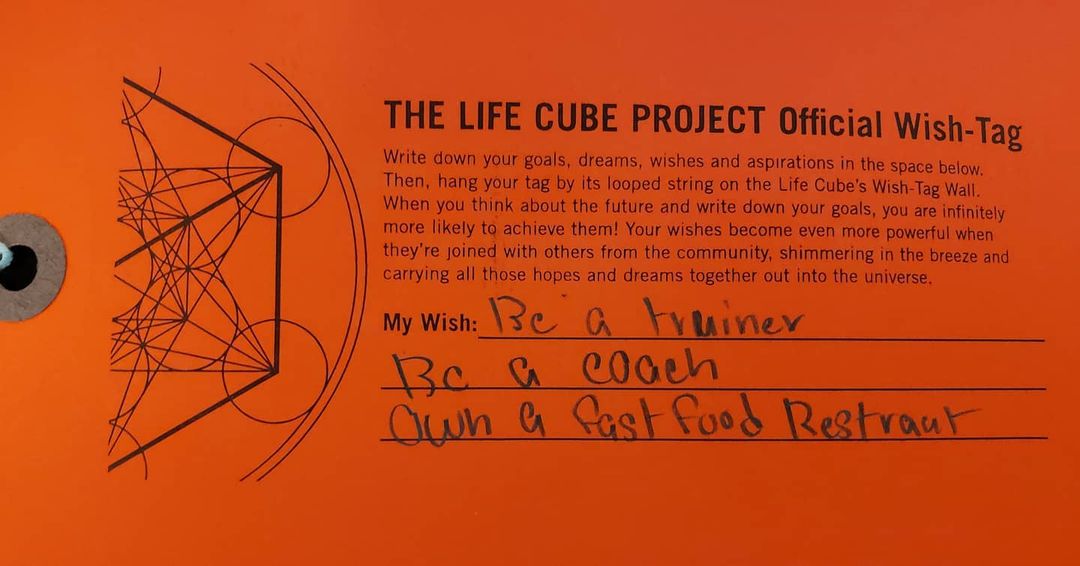 THE LIFE CUBE PROJECT Official Wish-Tag
Write down your goals, dreams, wishes and aspirations in the space below.
Then, hang your tag by its looped string on the Life Cube's Wish-Tag Wall.
When you think about the future and write down your goals, you are infinitely
more likely to achieve them! Your wishes become even more powerful when
they're joined with others from the community, shimmering in the breeze and
carrying all those hopes and dreams together out into the universe.
My Wish: Be a trainer
Be a coach
Own a fast food Restraut